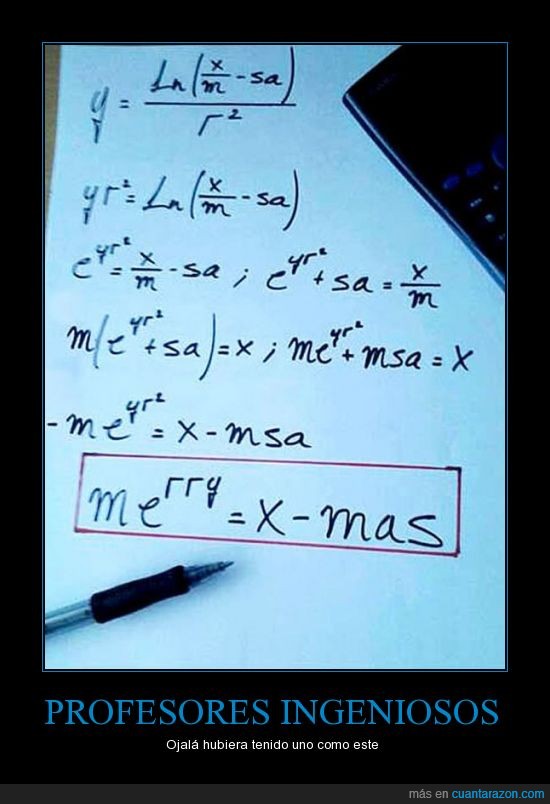 y = Ln(x/m - sa) / r²
yr² = Ln(x/m - sa)
e^yr² = x/m - sa ; e^yr² + sa = x/m
m(e^yr² + sa) = x ; me^yr² + msa = x
- me^yr² = x - msa
me^rry = x - mas
PROFESORES INGENIOSOS
Ojalá hubiera tenido uno como este
más en cuantarazon.com